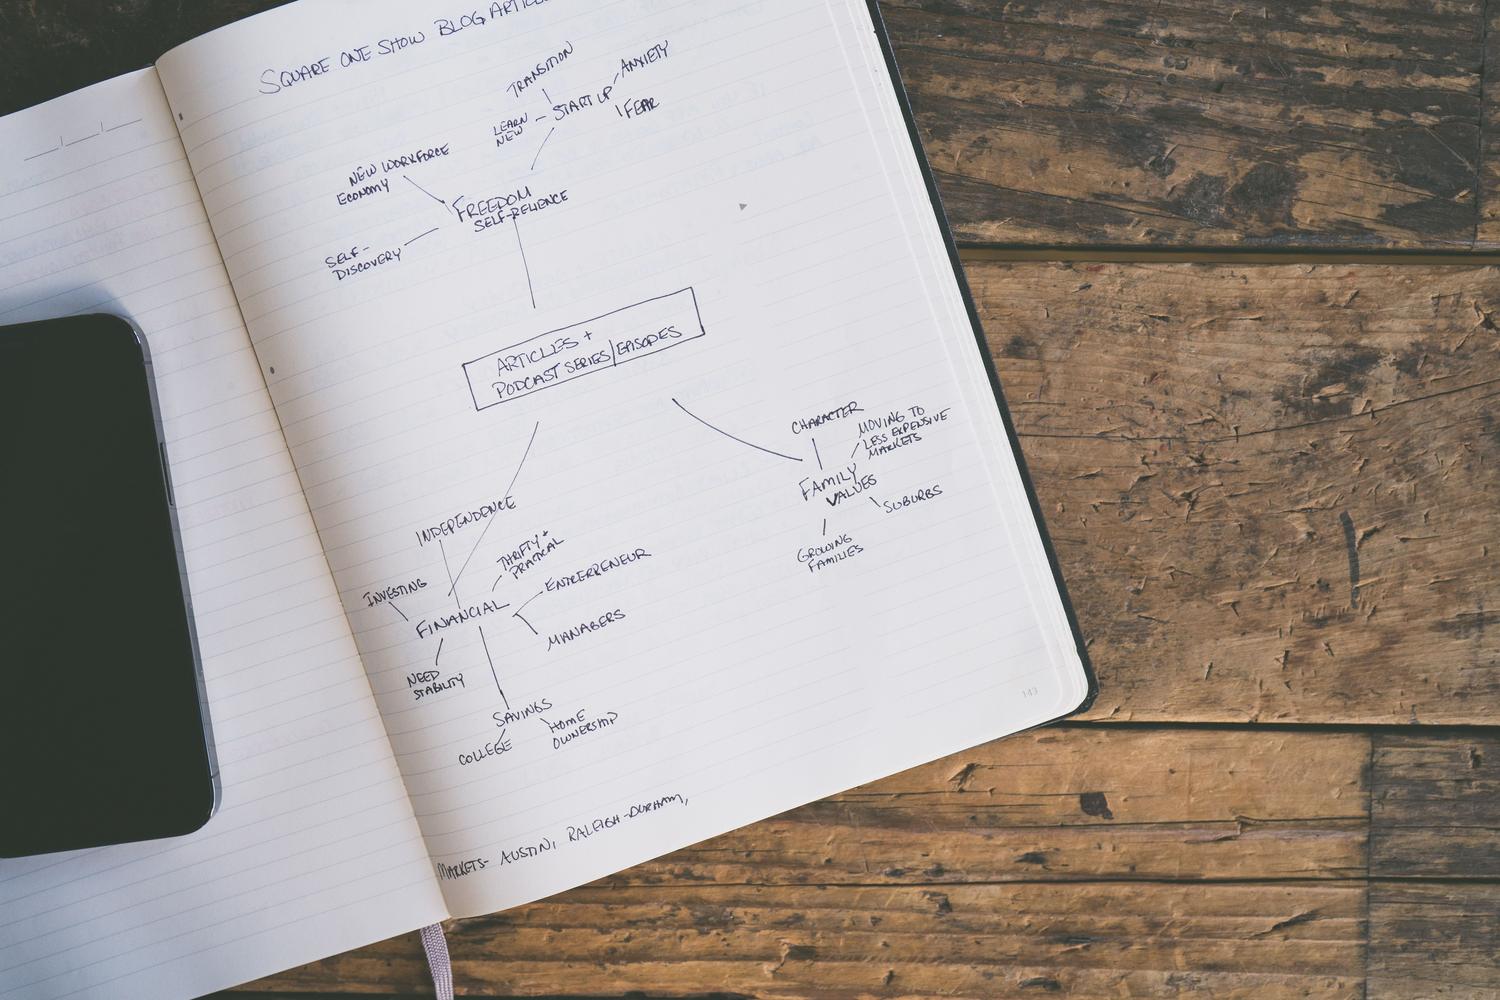 SQUARE ONE SHOW BLOG ARTICLES
TRANSITION
ANXIETY
START UP
FEAR
LEARN
NEW
NEW WORKFORCE
ECONOMY
FREEDOM
SELF-RELIENCE
SELF-
DISCOVERY
ARTICLES +
PODCAST SERIES/EPISODES
CHARACTER
MOVING TO
LESS EXPENSIVE
MARKETS
FAMILY
VALUES
SUBURBS
GROWING
FAMILIES
INDEPENDENCE
THRIFTY +
PRACTICAL
ENTREPRENEUR
INVESTING
FINANCIAL
MANAGERS
NEED
STABILITY
SAVINGS
HOME
OWNERSHIP
COLLEGE
MARKETS- AUSTIN, RALEIGH-DURHAM,
143